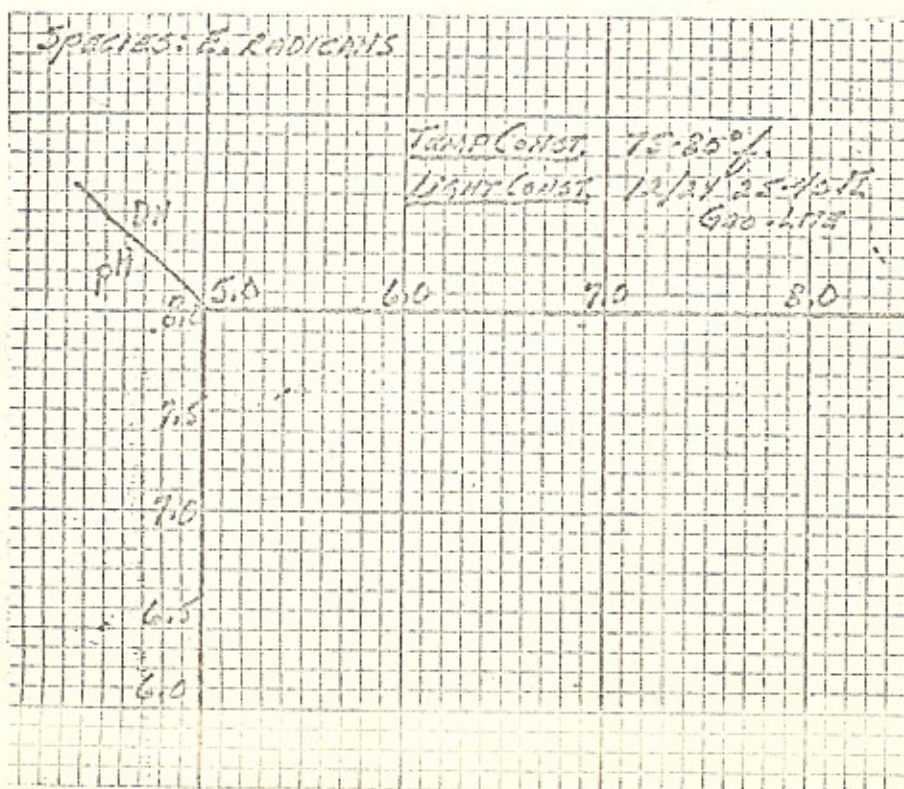 SPECIES: E. RADICANS
TEMP CONST. 75-80°
LIGHT CONST. 12/24
DH
PH
5.0 6.0 7.0 8.0
8.0
7.5
7.0
6.5
6.0